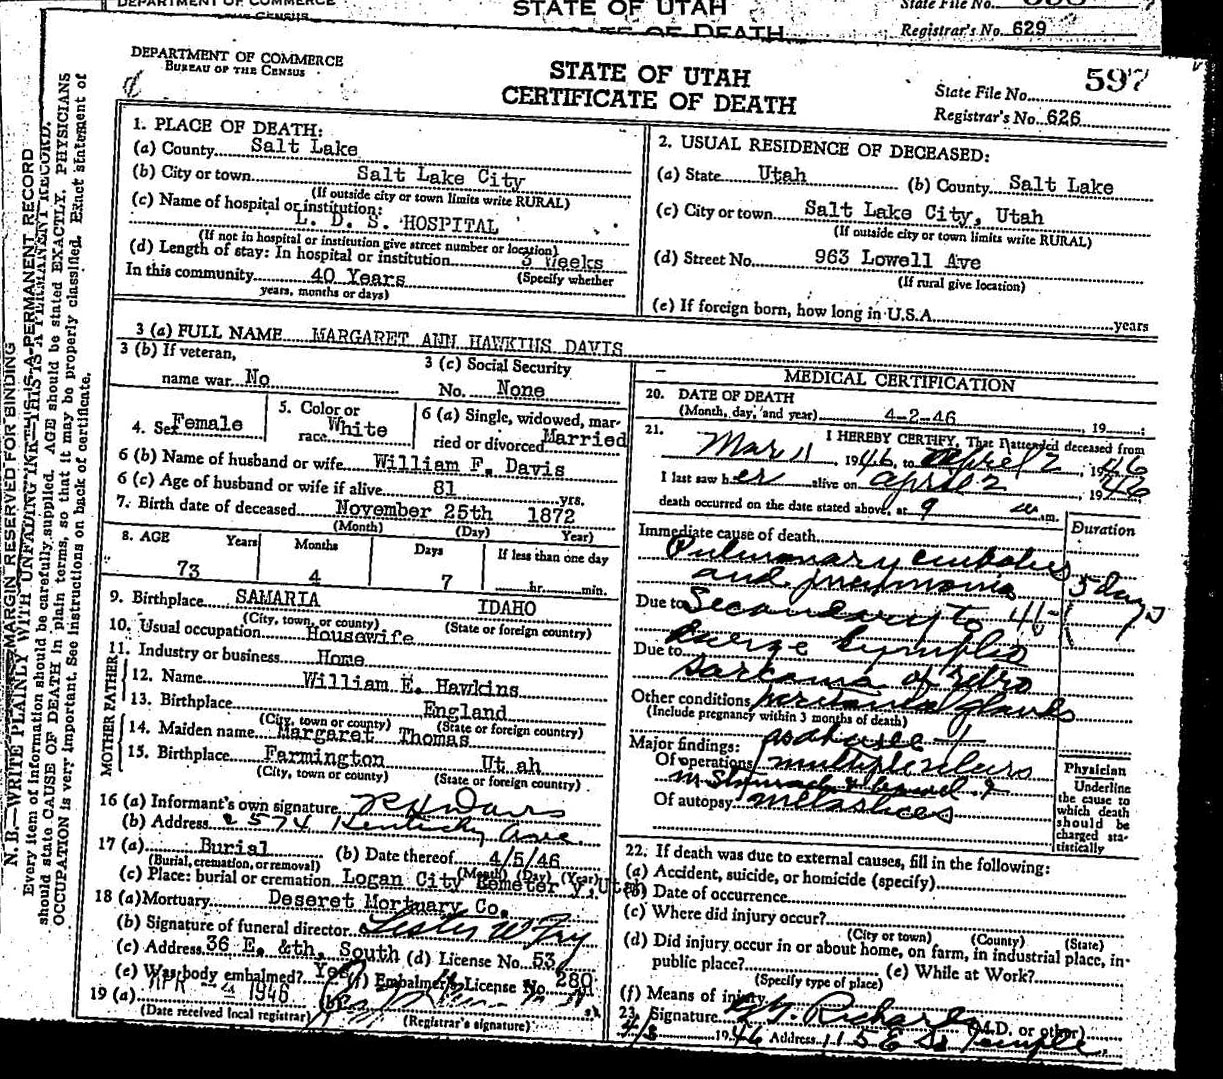 DEPARTMENT OF COMMERCE
STATE OF UTAH
State File No.
Registrar's No. 629
DEPARTMENT OF COMMERCE
BUREAU OF THE CENSUS
STATE OF UTAH
CERTIFICATE OF DEATH
State File No. 597
Registrar's No. 626
MARGIN RESERVED FOR BINDING
N. B.—WRITE PLAINLY WITH UNFADING INK—THIS IS A PERMANENT RECORD
Every item of information should be carefully supplied. AGE should be stated EXACTLY. PHYSICIANS
should state CAUSE OF DEATH in plain terms, so that it may be properly classified. Exact statement of
OCCUPATION is very important. See instructions on back of certificate.
1. PLACE OF DEATH:
(a) County Salt Lake
(b) City or town Salt Lake City
(If outside city or town limits write RURAL)
(c) Name of hospital or institution:
L. D. S. HOSPITAL
(If not in hospital or institution give street number or location)
(d) Length of stay: In hospital or institution 3 Weeks
(Specify whether
In this community 40 Years
years, months or days)
2. USUAL RESIDENCE OF DECEASED:
(a) State Utah (b) County Salt Lake
(c) City or town Salt Lake City, Utah
(If outside city or town limits write RURAL)
(d) Street No. 963 Lowell Ave
(If rural give location)
(e) If foreign born, how long in U.S.A. years
3 (a) FULL NAME MARGARET ANN HAWKINS DAVIS
3 (b) If veteran,
name war No
3 (c) Social Security
No. None
4. Sex Female
5. Color or
race White
6 (a) Single, widowed, mar-
ried or divorced Married
6 (b) Name of husband or wife William F. Davis
6 (c) Age of husband or wife if alive 81 yrs.
7. Birth date of deceased November 25th 1872
(Month) (Day) Year)
8. AGE Years Months Days If less than one day
73 4 7 hr. min.
9. Birthplace SAMARIA IDAHO
(City, town, or county) (State or foreign country)
10. Usual occupation Housewife
11. Industry or business Home
FATHER
12. Name William E. Hawkins
13. Birthplace England
(City, town or county) (State or foreign country)
MOTHER
14. Maiden name Margaret Thomas
15. Birthplace Farmington Ut ah
(City, town or county) (State or foreign country)
16 (a) Informant's own signature R H Davis
(b) Address 2574 Kentucky Ave.
17 (a) Burial (b) Date thereof 4/5/46
(Burial, cremation, or removal) (Month) (Day) (Year)
(c) Place: burial or cremation Logan City Cemeter y, Utah
18 (a) Mortuary Deseret Mortuary Co.
(b) Signature of funeral director Lester W Fry
(c) Address 36 E. &th, South (d) License No. 53
(e) Was body embalmed? Yes (f) Embalmer's License No. 280
19 (a) APR -4 1946 (b)
(Date received local registrar) (Registrar's signature)
MEDICAL CERTIFICATION
20. DATE OF DEATH
(Month, day, and year) 4-2-46 , 19 ;
21. I HEREBY CERTIFY, That I attended deceased from
Mar 11 , 1946, to April 2 , 1946
I last saw her alive on April 2 , 1946
death occurred on the date stated above, at 9 a m.
Duration
Immediate cause of death
Pulmonary embolus
and pneumonia 5 days
Due to Secondary to
Due to large lympho
sarkoma of retro
Other conditions peritoneal glands
(Include pregnancy within 3 months of death)
Major findings:
Of operations multiple ulcers
in stomach & bowel
Of autopsy metastices
Physician
Underline
the cause to
which death
should be
charged sta-
tistically
22. If death was due to external causes, fill in the following:
(a) Accident, suicide, or homicide (specify)
(b) Date of occurrence
(c) Where did injury occur?
(City or town) (County) (State)
(d) Did injury occur in or about home, on farm, in industrial place, in-
public place? (e) While at Work?
(Specify type of place)
(f) Means of injury
23. Signature G. G. Richards (M.D. or other)
4/3 1946 Address 115 E So Temple